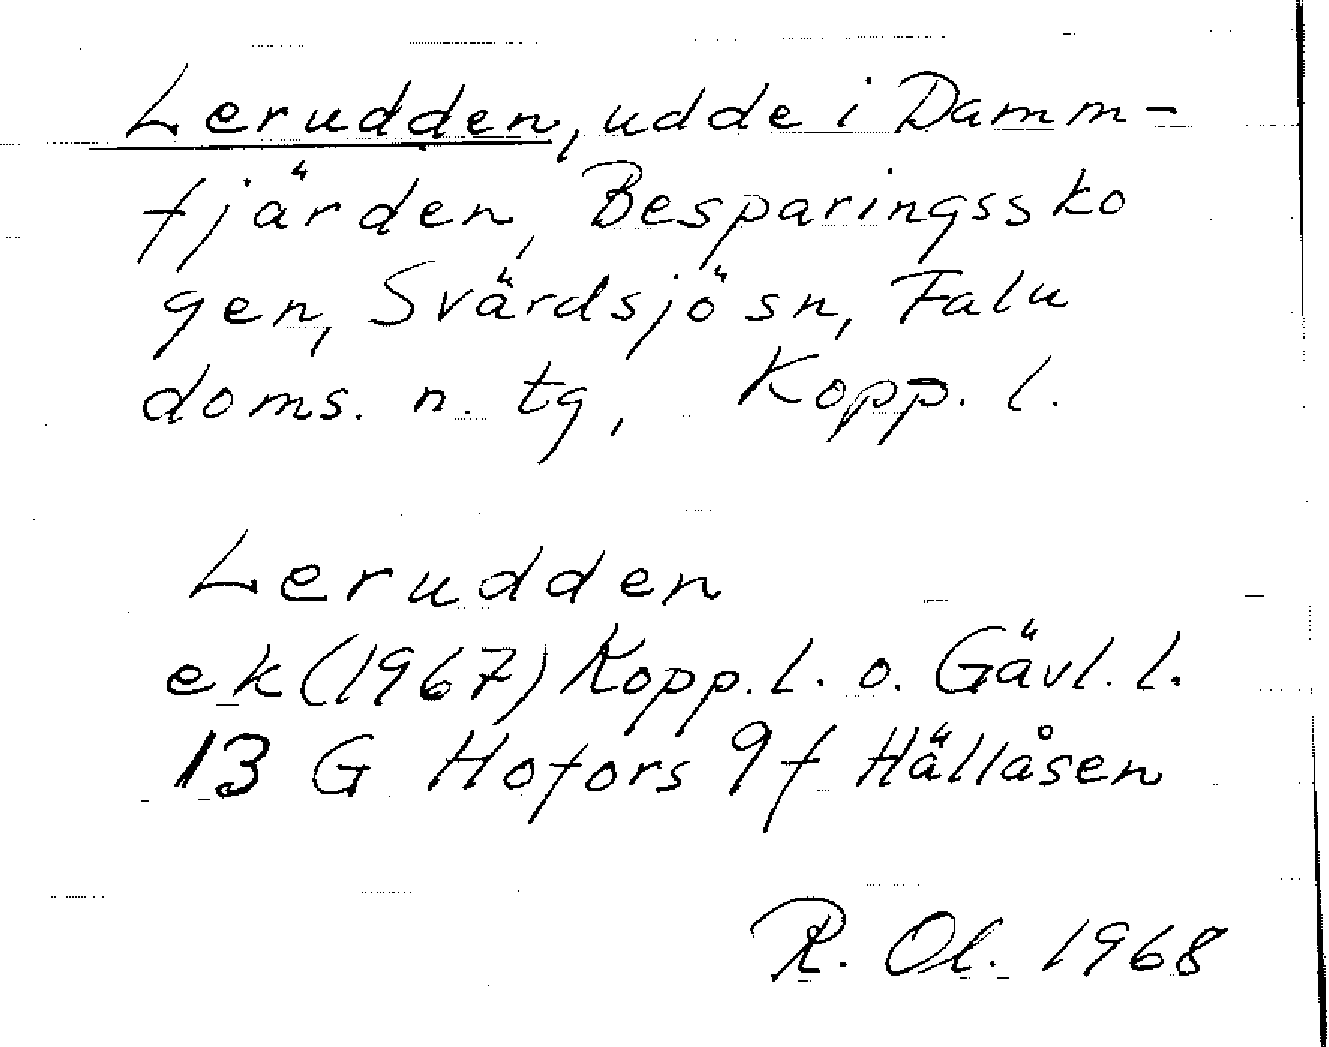 Lerudden, udde i Damm-
fjärden, Besparingssko
gen, Svärdsjö sn, Falu
doms. n. tg, Kopp. l.
Lerudden
ek (1967) Kopp. l. o. Gävl. l.
13 G Hofors 9f Hällåsen
R. Ol. 1968